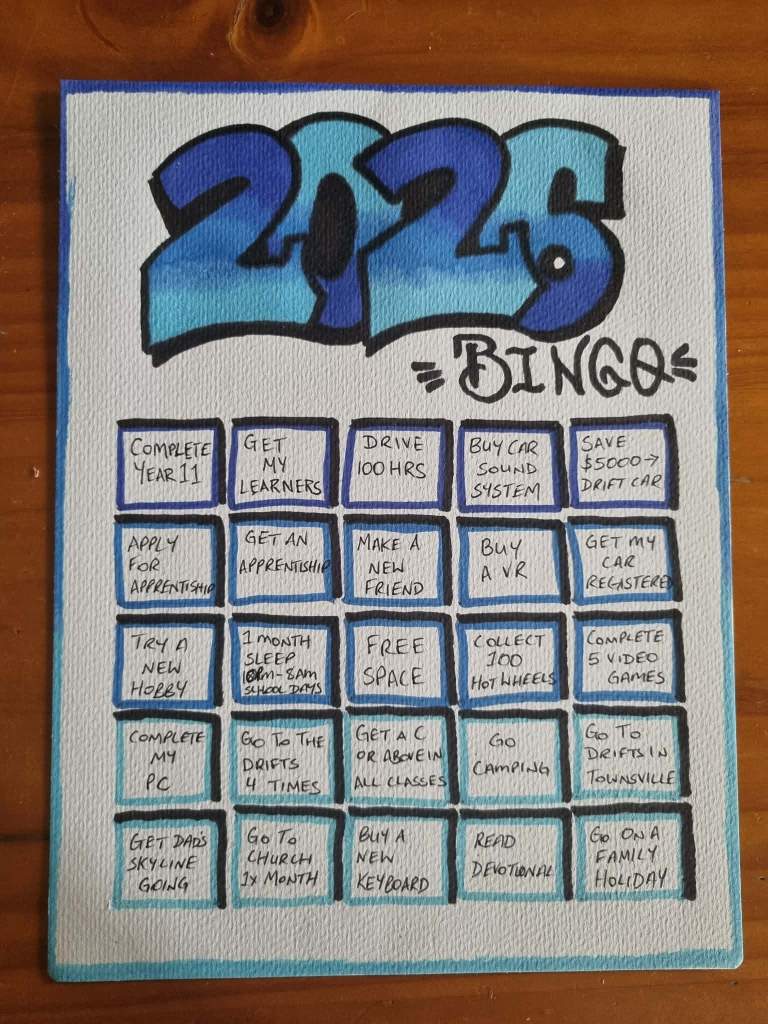 2026
BINGO
COMPLETE
YEAR 11
GET
MY
LEARNERS
DRIVE
100 HRS
BUY CAR
SOUND
SYSTEM
SAVE
$5000→
DRIFT CAR
APPLY
FOR
APPRENTISHIP
GET AN
APPRENTISHIP
MAKE A
NEW
FRIEND
BUY
A VR
GET MY
CAR
REGASTERED
TRY A
NEW
HOBBY
1 MONTH
SLEEP
10PM-8AM
SCHOOL DAYS
FREE
SPACE
COLLECT
100
HOT WHEELS
COMPLETE
5 VIDEO
GAMES
COMPLETE
MY
PC
GO TO THE
DRIFTS
4 TIMES
GET A C
OR ABOVE IN
ALL CLASSES
GO
CAMPING
GO TO
DRIFTS IN
TOWNSVILLE
GET DAD'S
SKYLINE
GOING
GO TO
CHURCH
1x MONTH
BUY A
NEW
KEYBOARD
READ
DEVOTIONAL
GO ON A
FAMILY
HOLIDAY